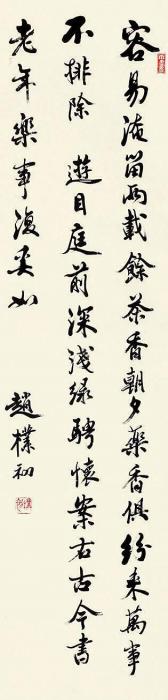 容易淹留兩載餘茶香朝夕藥香俱紛來萬事
不排除 遊目庭前深淺綠騁懷案右古今書
老年樂事復奚如 趙樸初